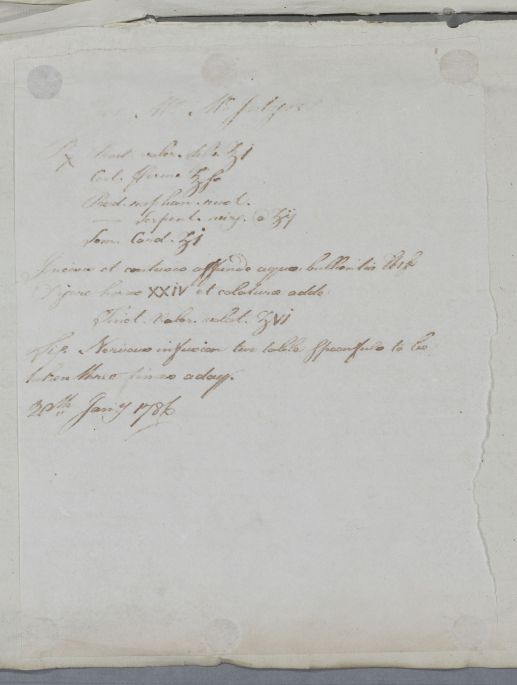 Rx Rad. valer. silv. ℥j
Cort. ℥ss
Rad. valer.
— Serpent. virg. a ʒij
Sem. Card. ʒj
Incisa et contusa affunde aquae bullientis
Digere horas XXIV et colaturae adde
Tinct. valer. volat. ʒvi
Sig. Nervous infusion two table spoonfuls to be
taken three times a day.
20th Jany 1786